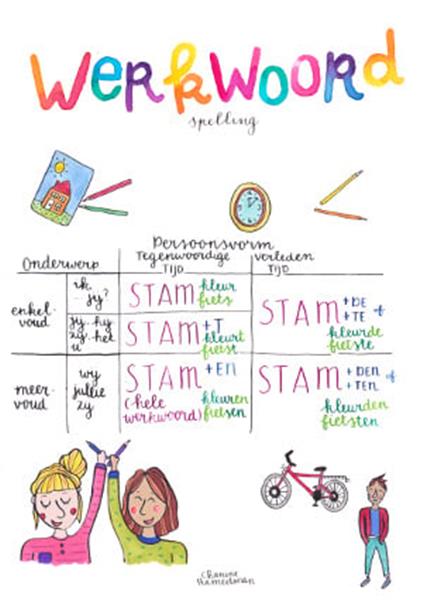 Werkwoord
spelling
Persoonsvorm
Onderwerp
Tegenwoordige
TIJD
verleden
TIJD
enkel-
voud
ik
jij?
STAM
kleur
fiets
jij-hij
zij-het
u
STAM+T
kleurt
fietst
STAM
+DE
+TE
kleurde
fietste
meer-
voud
wij
jullie
zij
STAM+EN
(-hele
werkwoord)
kleuren
fietsen
STAM
+DEN
+TEN
kleurden
fietsten